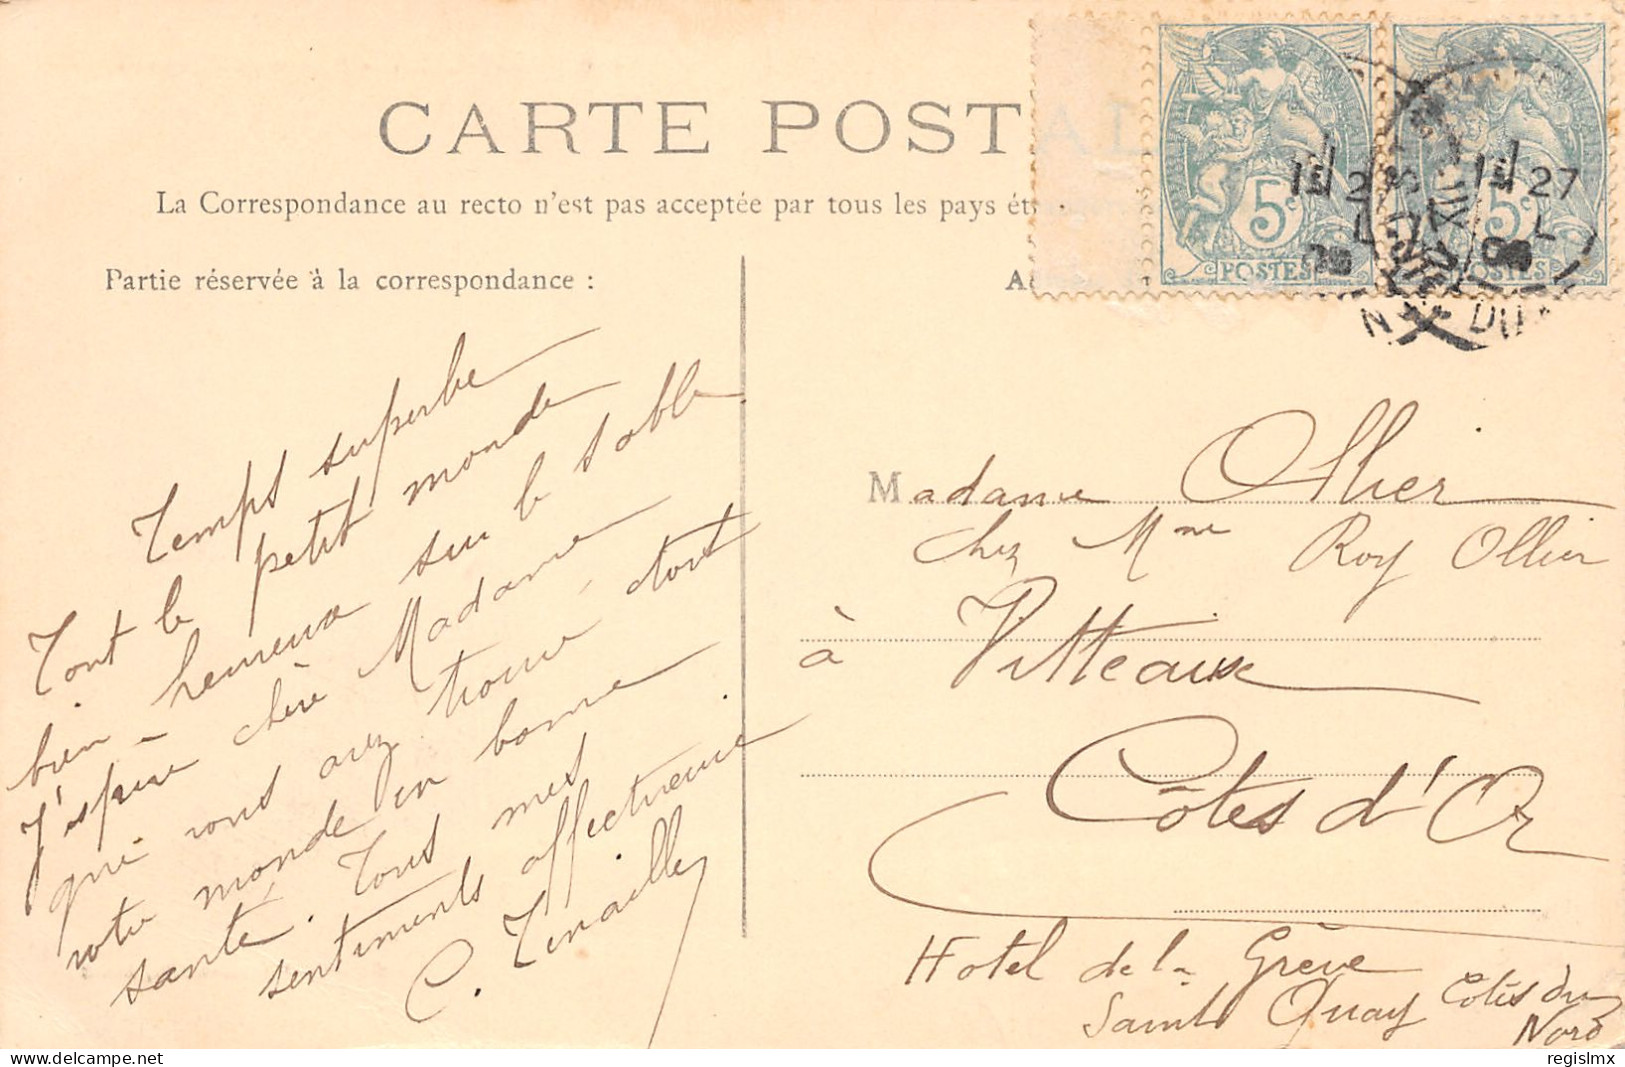 CARTE POSTAL
La Correspondance au recto n'est pas acceptée par tous les pays ét
Partie réservée à la correspondance :
Temps superbe
Tout le petit monde
bien heureux sur le sable
J'espère chère Madame
que vous avez trouvé tout
votre monde en bonne
santé. Tous mes
sentiments affectueux
C. Tenaille
5c
POSTES
27
5c
POSTES
Madame Ollier
chez Mme Roy Ollier
à Vitteaux
Côtes d'Or
Hotel de la Grève
Saint Quay Côtes du
Nord
regislmx